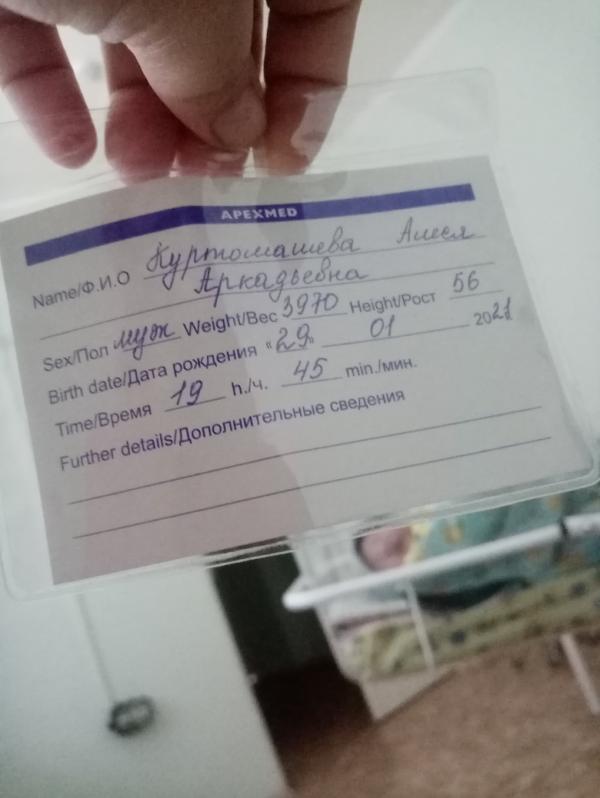 APEXMED
Name/Ф.И.О Куртомашева Алеся
Аркадьевна
Sex/Пол муж Weight/Вес 3970 Height/Рост 56
Birth date/Дата рождения "29" 01 2021
Time/Время 19 h./ч. 45 min./мин.
Further details/Дополнительные сведения